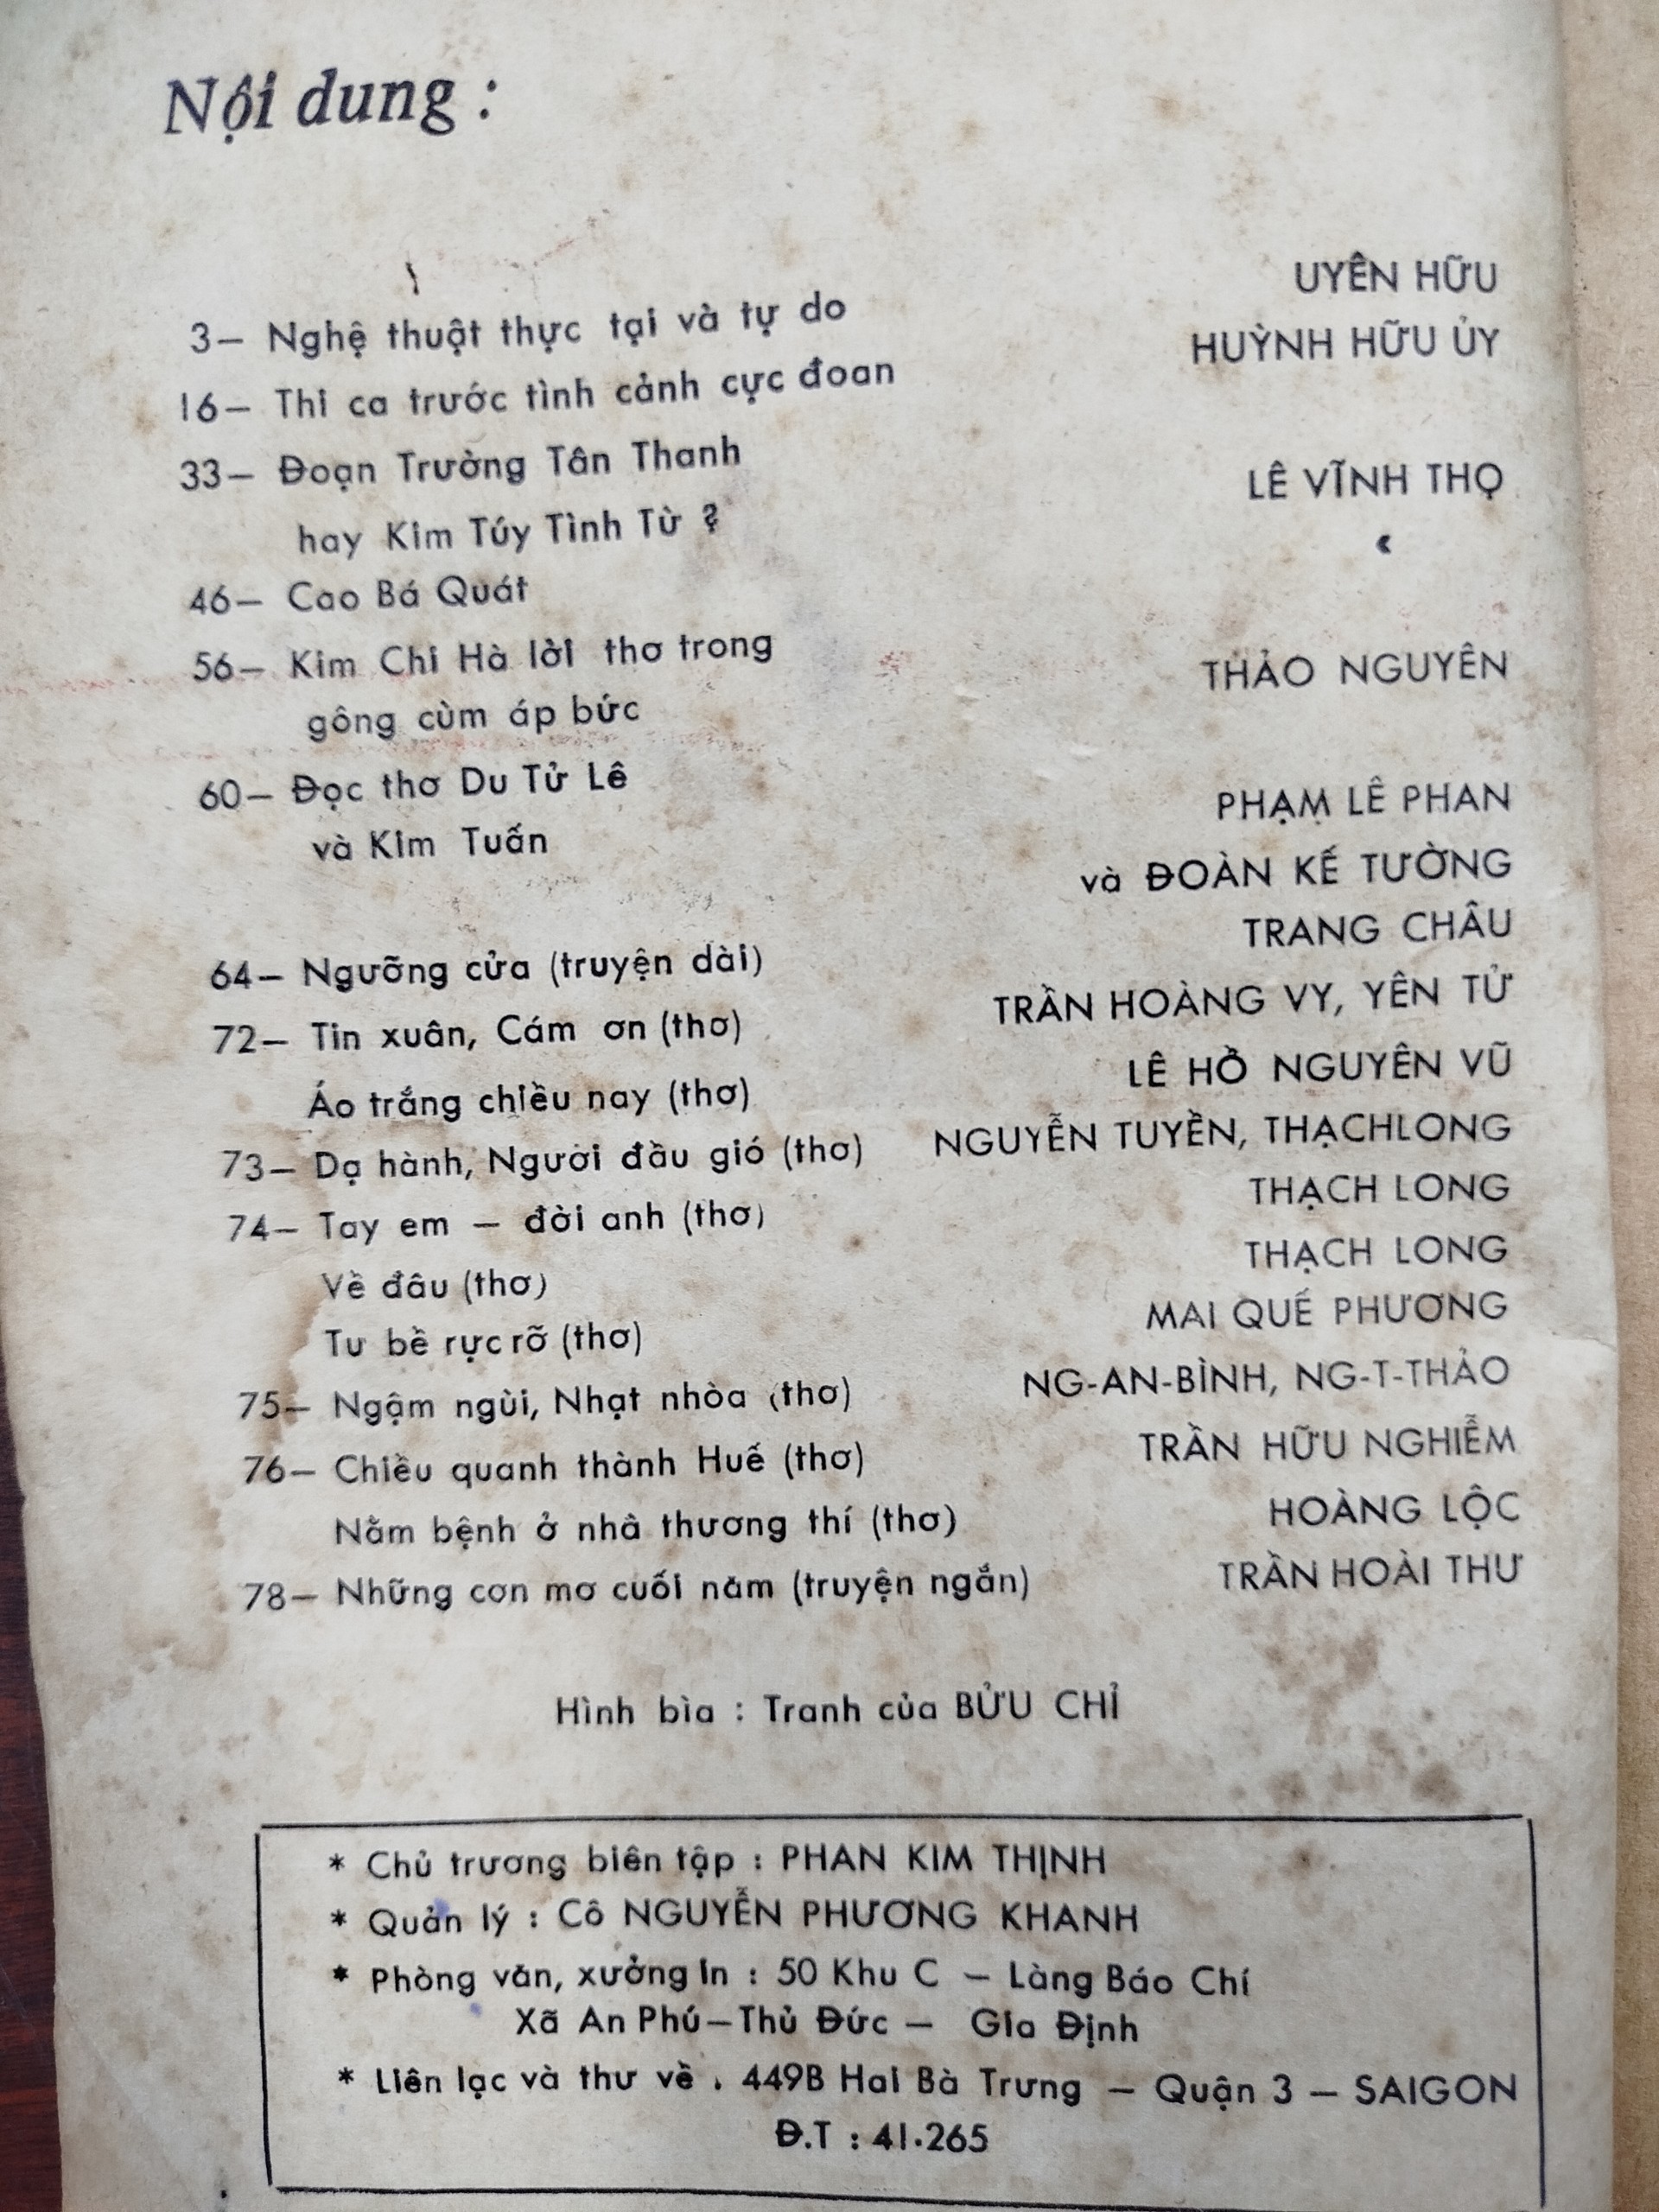 Nội dung :
3— Nghệ thuật thực tại và tự do UYÊN HỮU
16— Thi ca trước tình cảnh cực đoan HUỲNH HỮU ỦY
33— Đoạn Trường Tân Thanh
hay Kim Túy Tình Từ ? LÊ VĨNH THỌ
46— Cao Bá Quát «
56— Kim Chi Hà lời thơ trong
gông cùm áp bức THẢO NGUYÊN
60— Đọc thơ Du Tử Lê PHẠM LÊ PHAN
và Kim Tuấn và ĐOÀN KẾ TƯỜNG
64— Ngưỡng cửa (truyện dài) TRANG CHÂU
72— Tin xuân, Cám ơn (thơ) TRẦN HOÀNG VY, YÊN TỬ
Áo trắng chiều nay (thơ) LÊ HỒ NGUYÊN VŨ
73— Dạ hành, Người đầu gió (thơ) NGUYỄN TUYỀN, THẠCHLONG
74— Tay em — đời anh (thơ) THẠCH LONG
Về đâu (thơ) THẠCH LONG
Tư bề rực rỡ (thơ) MAI QUẾ PHƯƠNG
75— Ngậm ngùi, Nhạt nhòa (thơ) NG-AN-BÌNH, NG-T-THẢO
76— Chiều quanh thành Huế (thơ) TRẦN HỮU NGHIỄM
Nằm bệnh ở nhà thương thí (thơ) HOÀNG LỘC
78— Những cơn mơ cuối năm (truyện ngắn) TRẦN HOÀI THƯ
Hình bìa : Tranh của BỬU CHỈ
* Chủ trương biên tập : PHAN KIM THỊNH
* Quản lý : Cô NGUYỄN PHƯƠNG KHANH
* Phòng văn, xưởng in : 50 Khu C — Làng Báo Chí
Xã An Phú—Thủ Đức — Gia Định
* Liên lạc và thư về . 449B Hai Bà Trưng — Quận 3 — SAIGON
Đ.T : 41.265